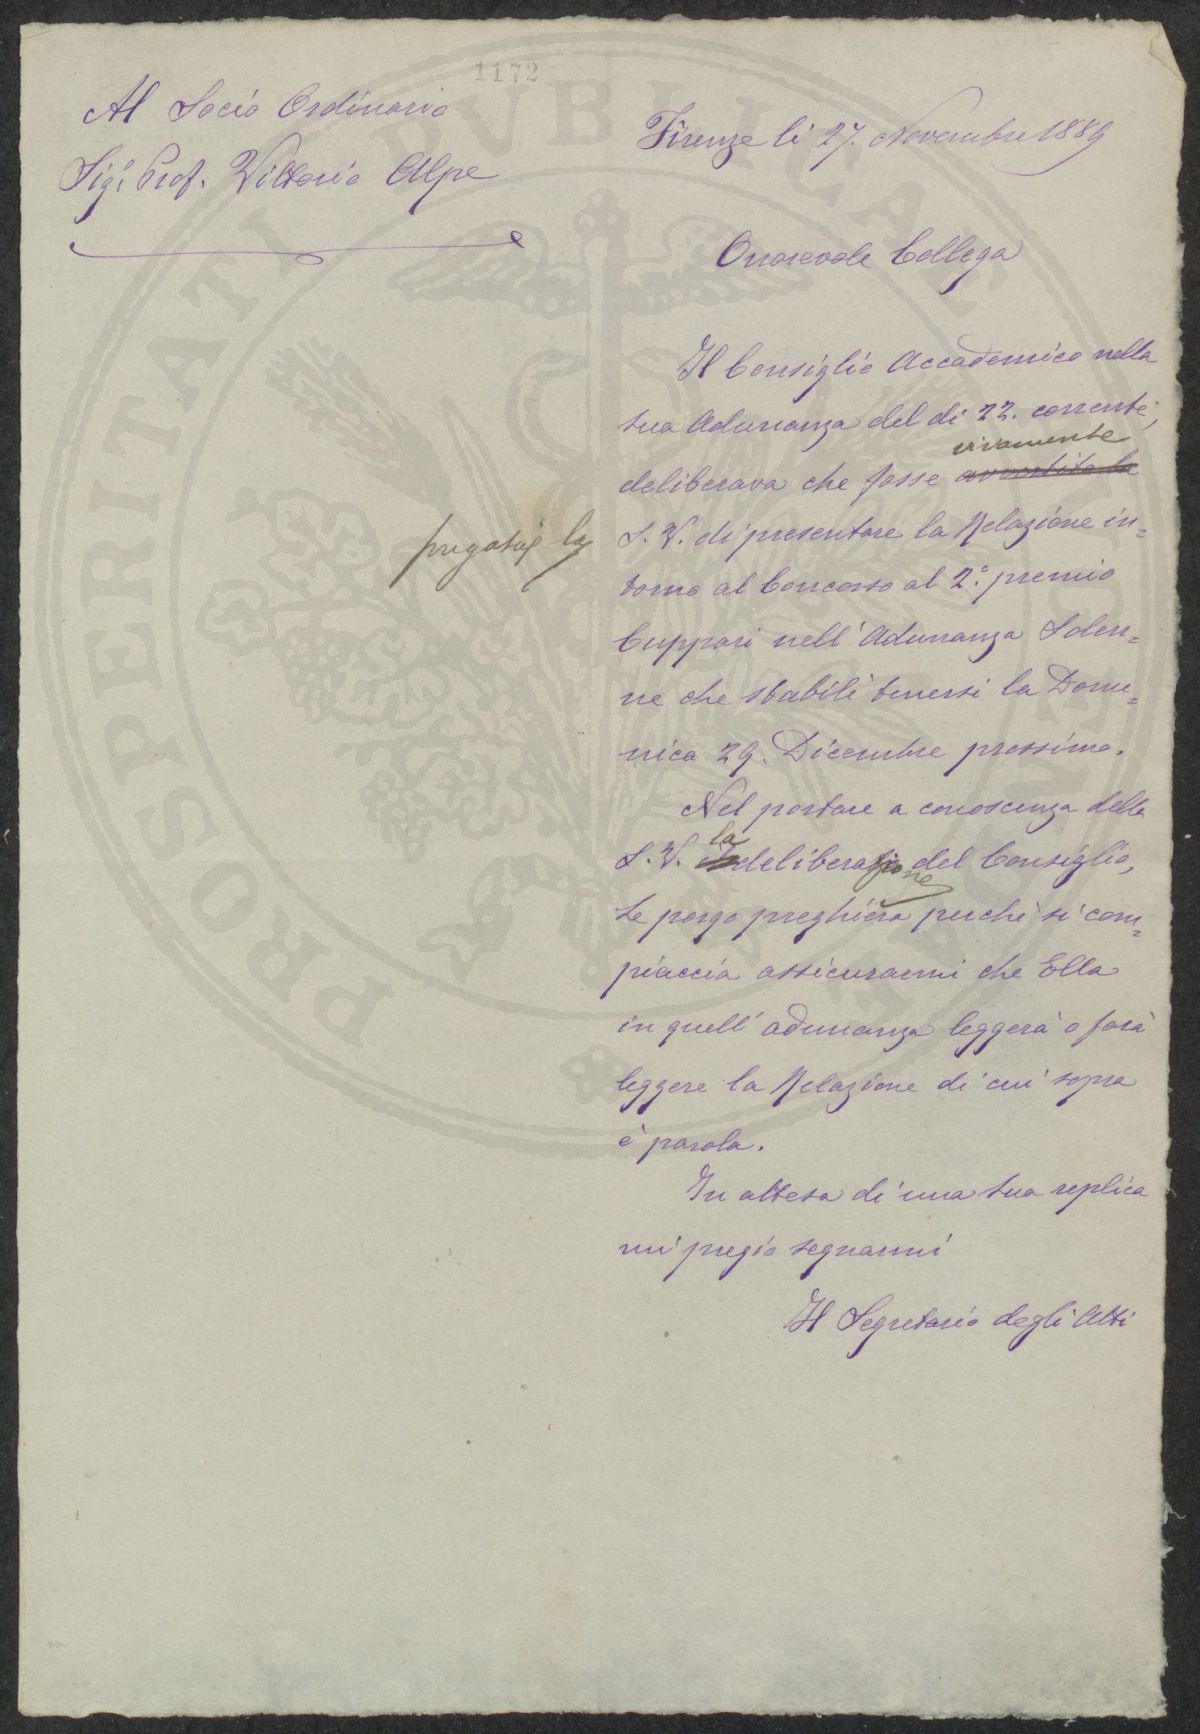 1172
Al Socio Ordinario
Sig.r Prof. Vittorio Alpe
Firenze li 27. Novembre 1889
Onorevole Collega
Il Consiglio Accademico nella
sua Adunanza del dì 22. corrente,
vivamente
deliberava che fosse avvertita la
pregata la
S. V. di presentare la Relazione in=
torno al Concorso al 2.° premio
Cuppari nell' Adunanza Solen=
ne che stabilì tenersi la Dome=
nica 29. Dicembre prossimo.
Nel portare a conoscenza della
la
S. V. deliberazione del Consiglio,
Le porgo preghiera perchè si com=
piaccia assicurarmi che Ella
in quell' adunanza leggerà o farà
leggere la Relazione di cui sopra
è parola.
In attesa di una sua replica
mi pregio segnarmi
Il Segretario degli Atti
PROSPERITATI PVBLICAE AVGENDAE